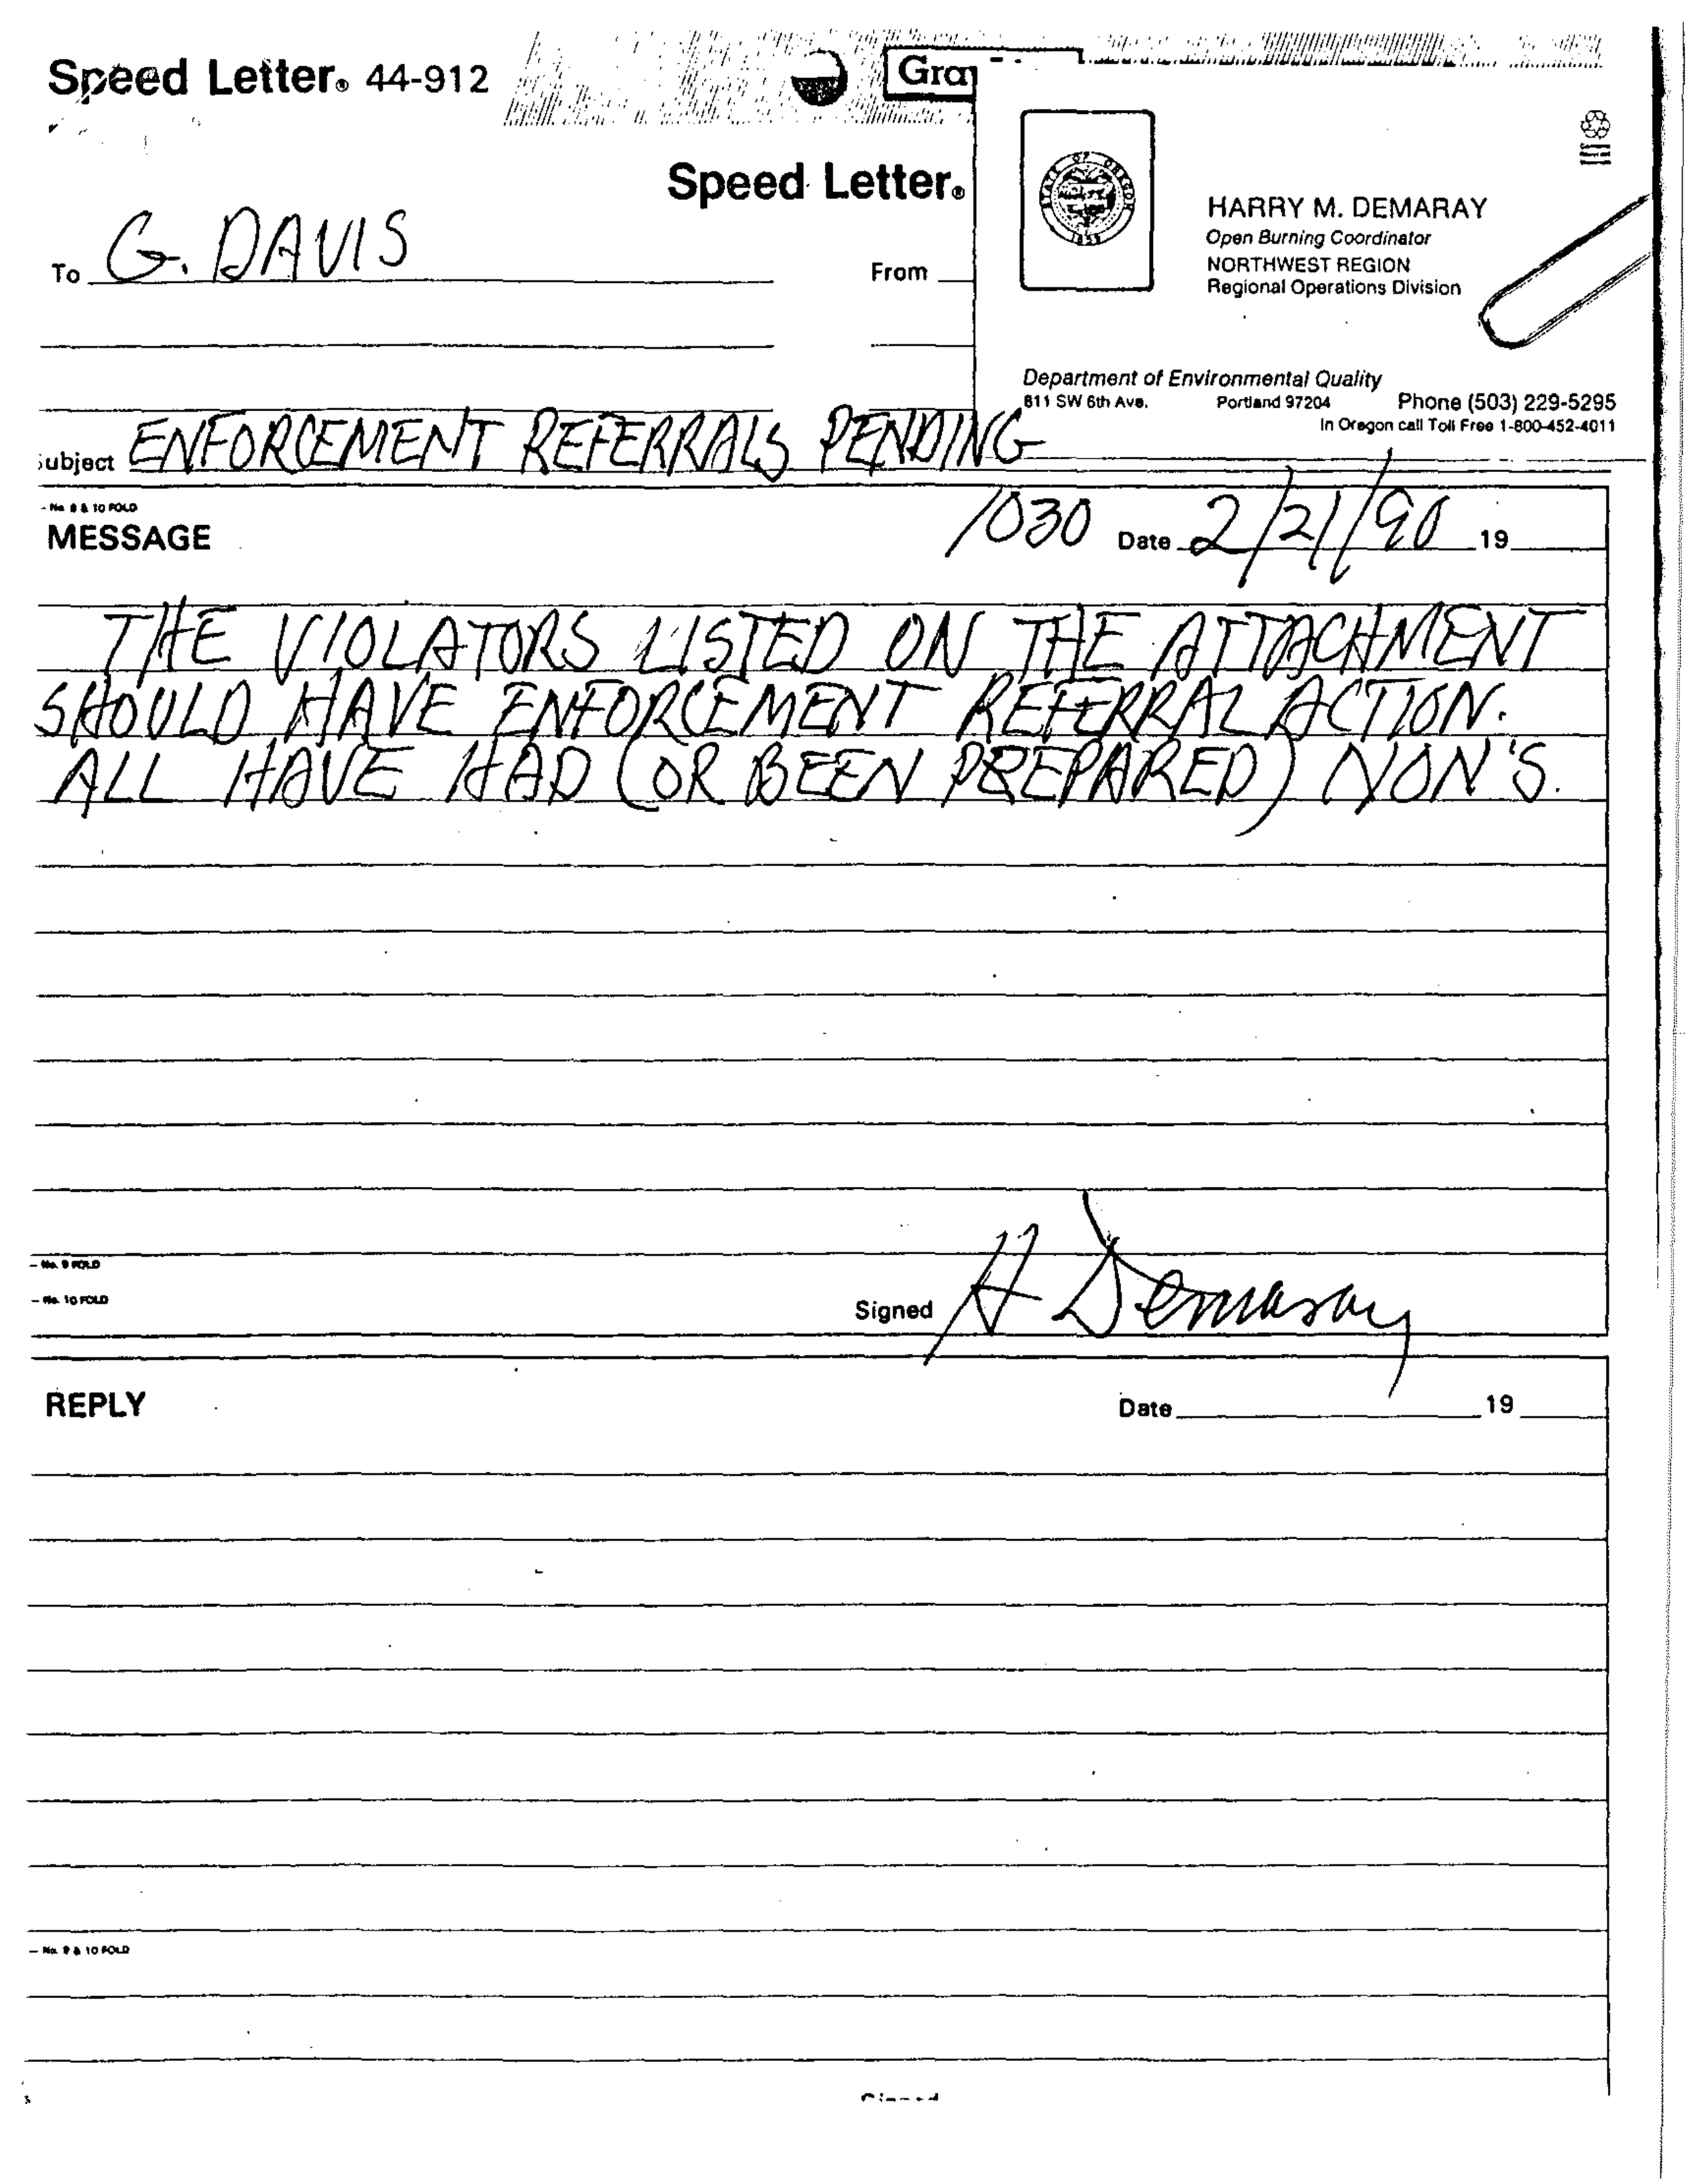 Speed Letter® 44-912
Gra
Speed Letter®
STATE OF OREGON
1859
HARRY M. DEMARAY
Open Burning Coordinator
NORTHWEST REGION
Regional Operations Division
To G. DAVIS
From
Department of Environmental Quality
811 SW 6th Ave. Portland 97204 Phone (503) 229-5295
In Oregon call Toll Free 1-800-452-4011
ubject ENFORCEMENT REFERRALS PENDING
- No. 9 & 10 FOLD
MESSAGE
1030 Date 2/21/90 19
THE VIOLATORS LISTED ON THE ATTACHMENT
SHOULD HAVE ENFORCEMENT REFERRAL ACTION.
ALL HAVE HAD (OR BEEN PREPARED) NON'S.
- No. 9 FOLD
- No. 10 FOLD
Signed H Demaray
REPLY
Date 19
- No. 9 & 10 FOLD